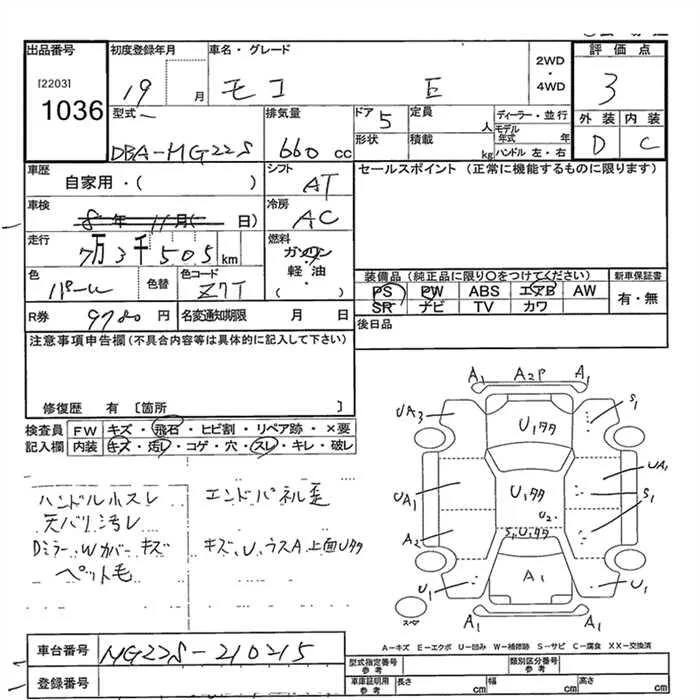 出品番号
[2203]
1036
初度登録年月
19 月
車名・グレード
モコ E
2WD
・
4WD
評価点
3
外装 内装
D C
型式
DBA-MG22S
排気量
660 cc
ドア
5
形状
定員
人
積載
kg
ディーラー・並行
モデル年式 年
ハンドル 左・右
車歴
自家用・( )
シフト
AT
セールスポイント (正常に機能するものに限ります)
車検
8年 11月( 日)
冷房
AC
走行
7万3千505km
燃料
ガソリン
軽・油
( )
色
パール
色替
色コード
Z7T
装備品 (純正品に限り○をつけてください)
PS PW ABS エアB AW
SR ナビ TV カワ
新車保証書
有・無
R券
9780 円
名変通知期限
月 日
後日品
注意事項申告欄 (不具合内容等は具体的に記入して下さい)
修復歴 有 [箇所 ]
検査員記入欄
FW キズ・飛石・ヒビ割・リペア跡・×要
内装 キズ・汚レ・コゲ・穴・スレ・キレ・破レ
ハンドルホスレ
天バリ汚レ
Dミラー、Wカバーキズ
ペット毛
エンドパネル歪
キズ、U、ウスA 上面Uタタ
A1 A2P A1
UA3 S1
U1タタ
UA1 UA1
U1タタ S1
U2
A2 S1U1タタ
U1 A1 U1
A1 A1
スペア
A−キズ E−エクボ U−凹み W−補修跡 S−サビ C−腐食 XX−交換済
車台番号
MG22S-210215
登録番号
型式指定番号
参考
類別区分番号
参考
車庫証明用
参考
長さ cm
幅 cm
高さ cm